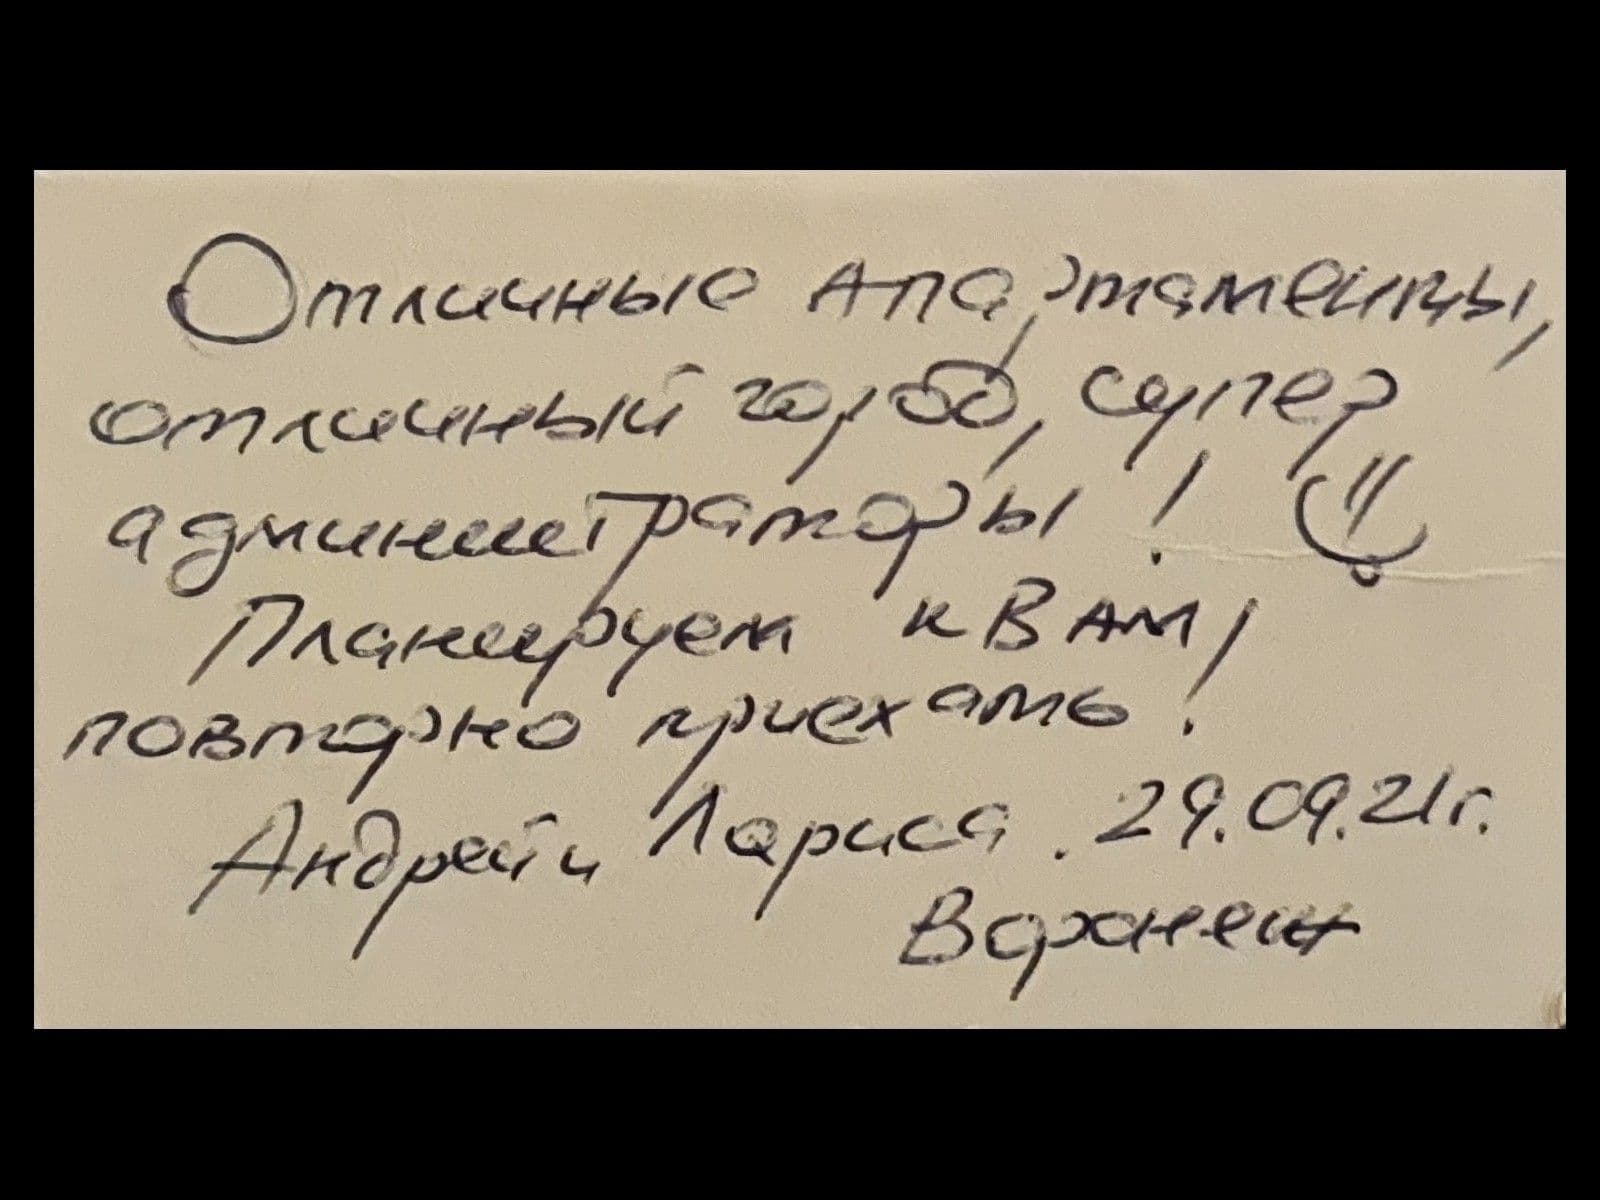 Отличные апартаменты,
отличный город, супер
администраторы!
Планируем к Вам,
повторно приехать!
Андрей и Лариса. 29.09.21г.